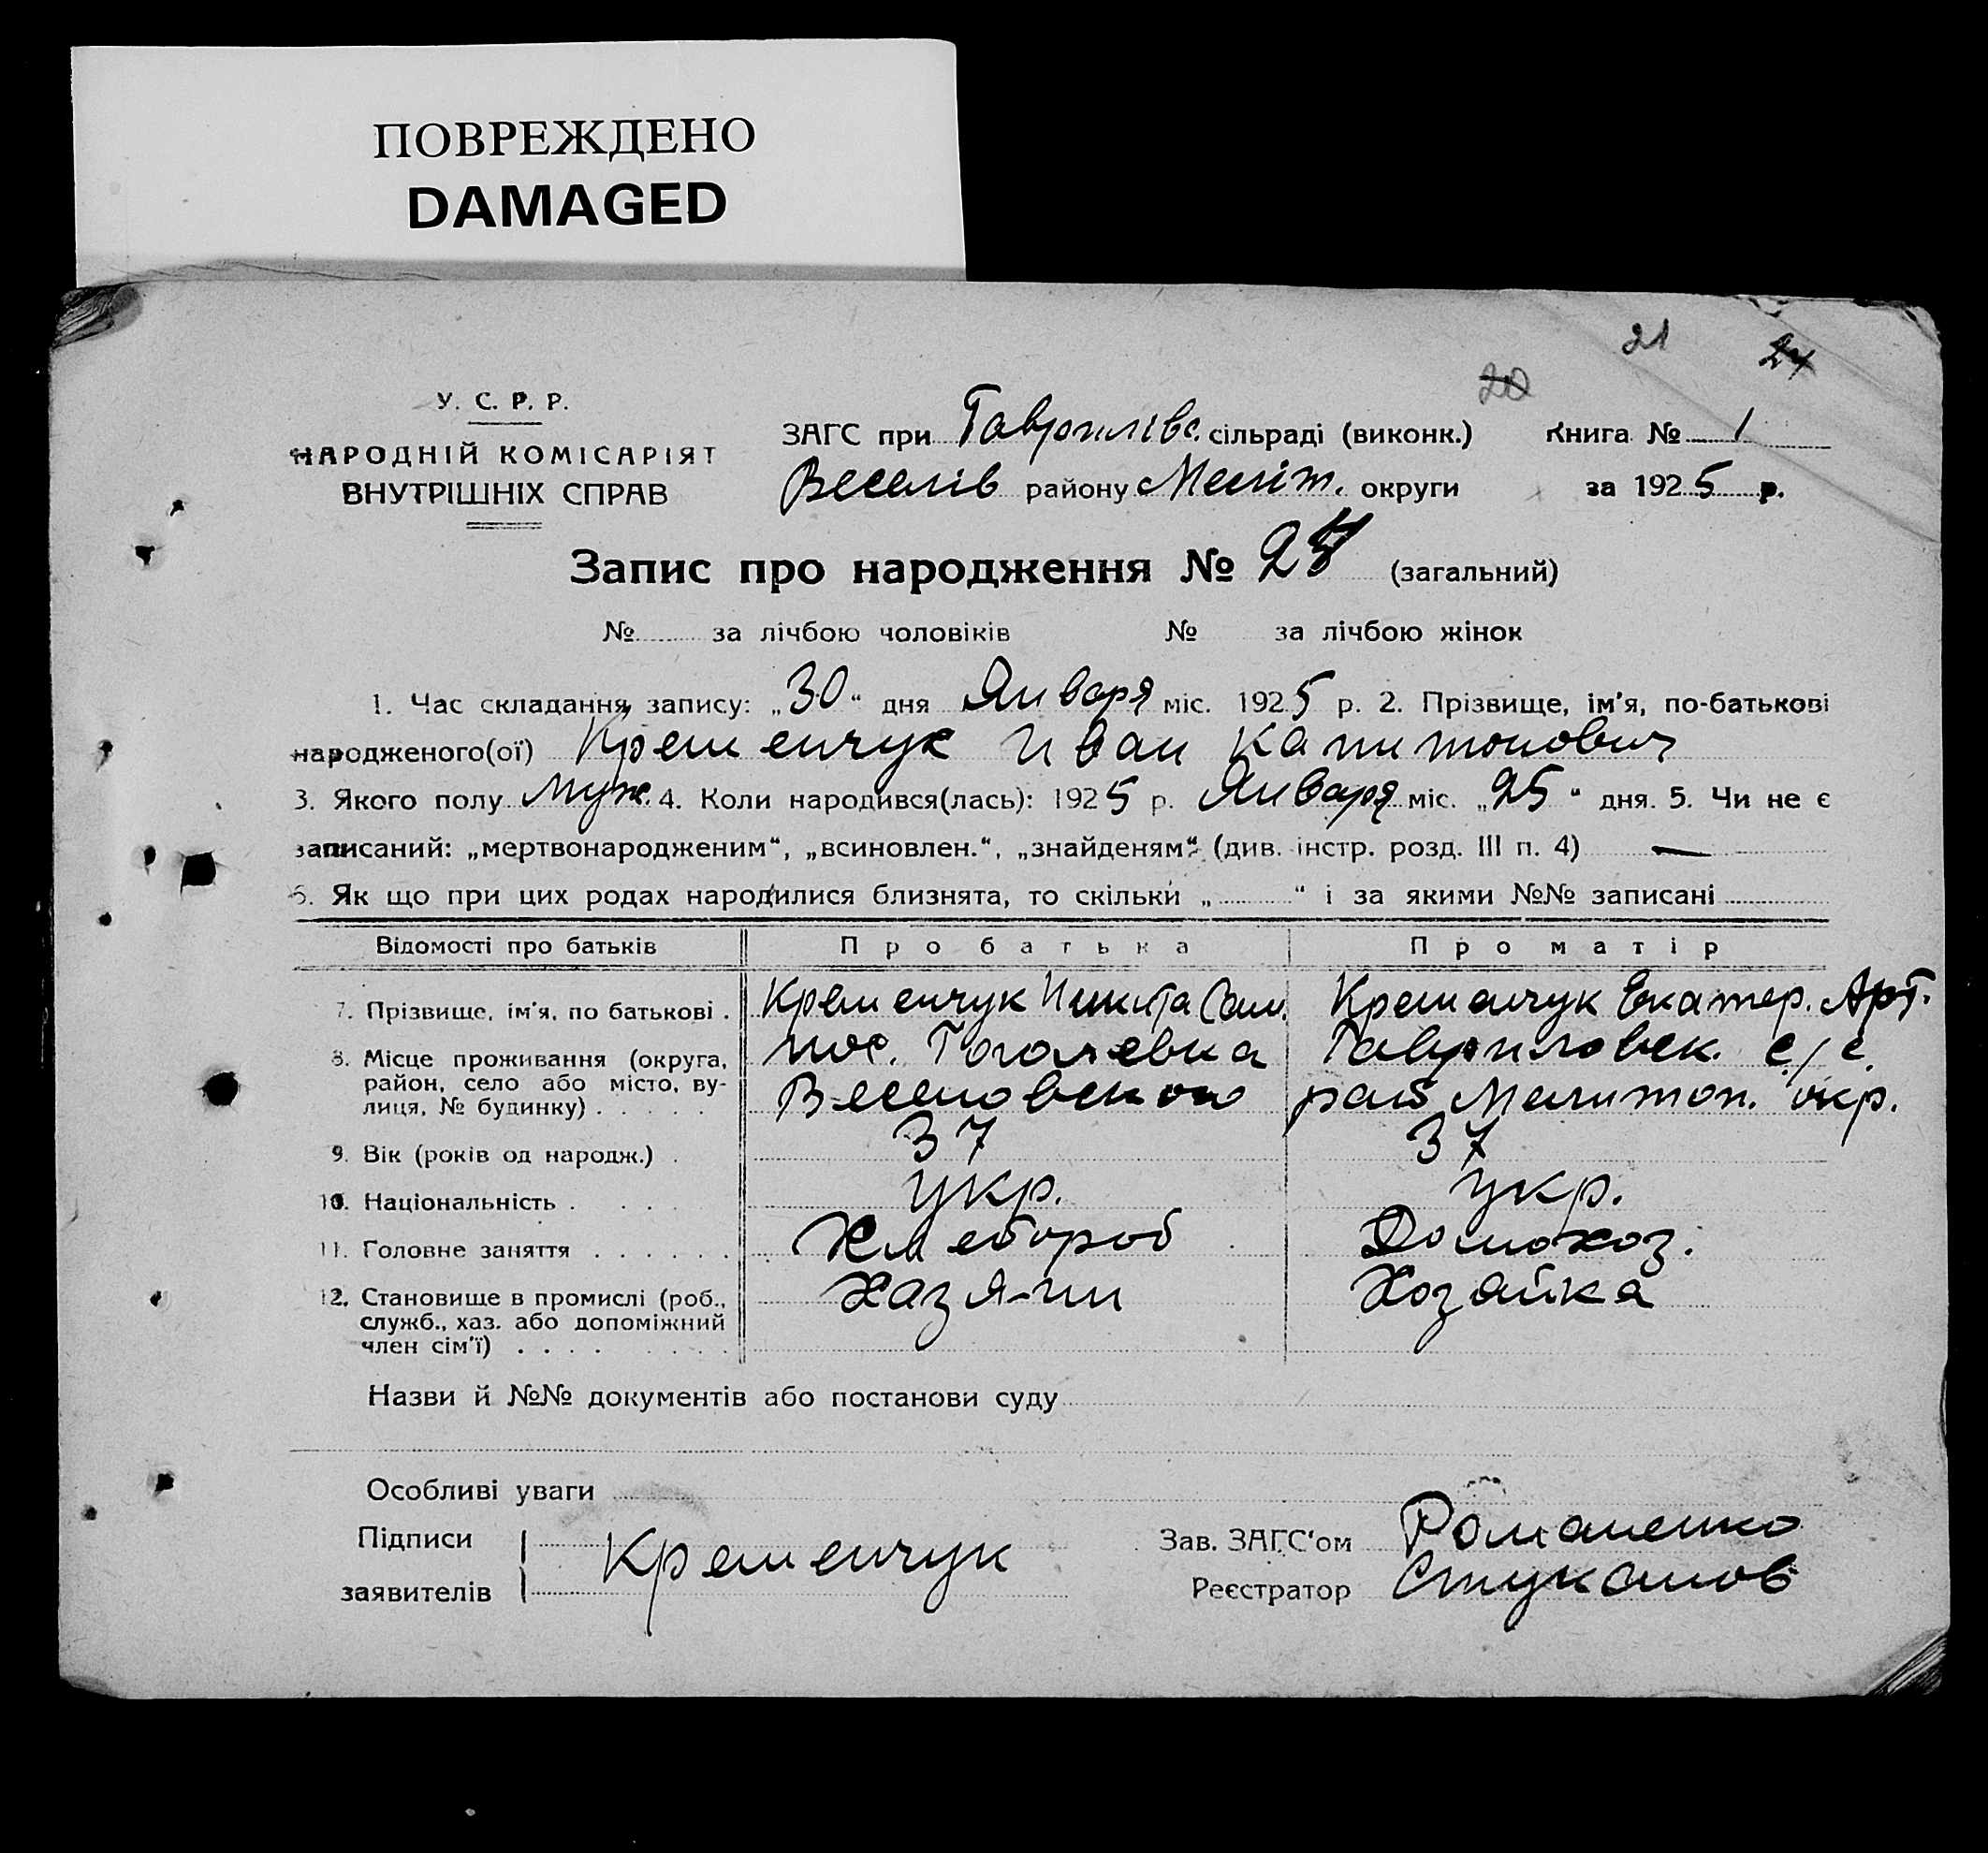 ПОВРЕЖДЕНО
DAMAGED
21
24
20
У. С. Р. Р.
НАРОДНІЙ КОМІСАРІЯТ
ВНУТРІШНІХ СПРАВ
ЗАГС при Гаврилівс. сільраді (виконк.) Книга № 1
Веселів району Меліт. округи за 1925 р.
Запис про народження № 24 (загальний)
№ за лічбою чоловіків № за лічбою жінок
1. Час складання запису: „30“ дня Января міс. 1925 р. 2. Прізвище, ім'я, по-батькові
народженого(ої) Кременчук Иван Капитонович
3. Якого полу муж. 4. Коли народився(лась): 1925 р. Января міс. „25“ дня. 5. Чи не є
записаний: „мертвонародженим“, „всиновлен.“, „знайденям“ (див. інстр. розд. III п. 4) —
6. Як що при цих родах народилися близнята, то скільки „ “ і за якими №№ записані
Відомості про батьків Про батька Про матір
7. Прізвище, ім'я, по батькові . Кременчук Никита Сам. Кременчук Екатер. Арт.
8. Місце проживання (округа, пос. Гоголевка Гавриловск. с/с.
район, село або місто, ву-
лиця, № будинку) . . . . . Веселовского рай Мелитоп. окр.
9. Вік (років од народж.) . 37 37
10. Національність . . . . укр. укр.
11. Головне заняття . . . . . . Хлебороб Домохоз.
12. Становище в промислі (роб., Хазяин Хозяйка
служб., хаз. або допоміжний
член сім'ї) . . . . . . . .
Назви й №№ документів або постанови суду
Особливі уваги
Підписи
заявителів Кременчук
Зав. ЗАГС'ом Романенко
Реєстратор Стуканов